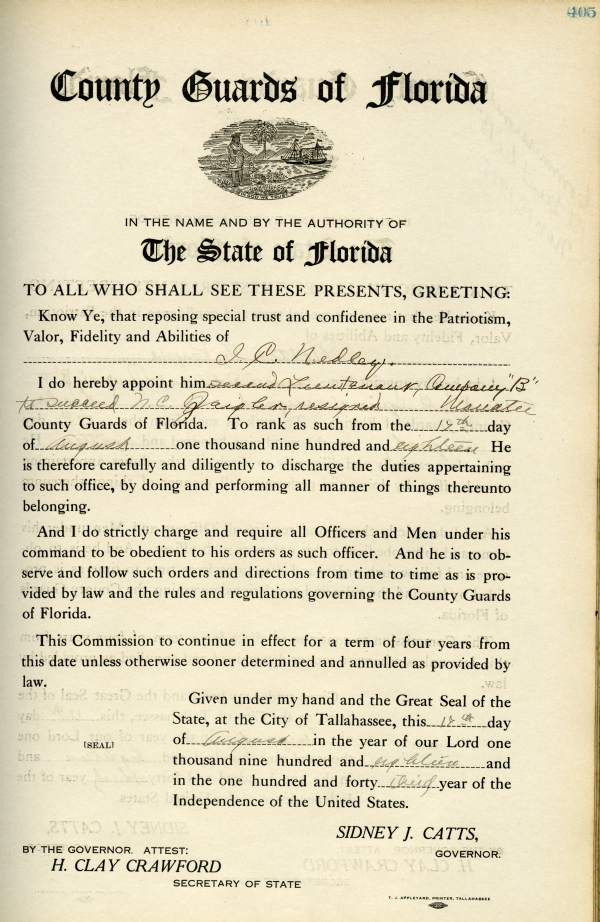 405
County Guards of Florida
IN THE NAME AND BY THE AUTHORITY OF
The State of Florida
TO ALL WHO SHALL SEE THESE PRESENTS, GREETING:
Know Ye, that reposing special trust and confidence in the Patriotism,
Valor, Fidelity and Abilities of
J. C. Nedley.
I do hereby appoint him second Lieutenant, Company "B"
to succeed N. C. Zeigler, resigned Manatee
County Guards of Florida. To rank as such from the 17th day
of August one thousand nine hundred and eighteen He
is therefore carefully and diligently to discharge the duties appertaining
to such office, by doing and performing all manner of things thereunto
belonging.
And I do strictly charge and require all Officers and Men under his
command to be obedient to his orders as such officer. And he is to ob-
serve and follow such orders and directions from time to time as is pro-
vided by law and the rules and regulations governing the County Guards
of Florida.
This Commission to continue in effect for a term of four years from
this date unless otherwise sooner determined and annulled as provided by
law.
Given under my hand and the Great Seal of the
State, at the City of Tallahassee, this 17th day
[SEAL] of August in the year of our Lord one
thousand nine hundred and eighteen and
in the one hundred and forty third year of the
Independence of the United States.
SIDNEY J. CATTS,
BY THE GOVERNOR. ATTEST: GOVERNOR.
H. CLAY CRAWFORD
SECRETARY OF STATE
T. J. APPLEYARD, PRINTER, TALLAHASSEE